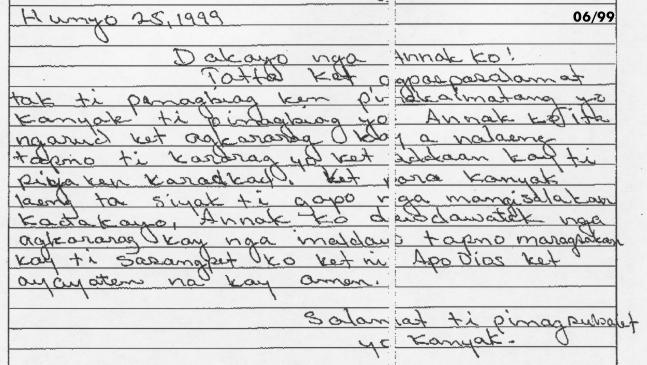 Hunyo 25, 1999
06/99
Dakayo nga Annak ko!
Tatta ket agpaspasalamat
tak ti panagbiag ken yo
Kanyak ti pinagbiag yo Annak ko ita
ngarud ket agkararag kay a nalaeng
tapno ti kararag yo ket addaan kay ti
pigsa ken karadkad. Ket para kanyak
laeng ta siyak ti gapo nga mangisalakan
kadakayo, Annak ko dawdawatek nga
agkararag kay nga inaldaw tapno maragsakan
kay ti sasangpet ko ket ni Apo Dios ket
ayayaten na kay amen.
Salamat ti pinagsubalit
yo kanyak.